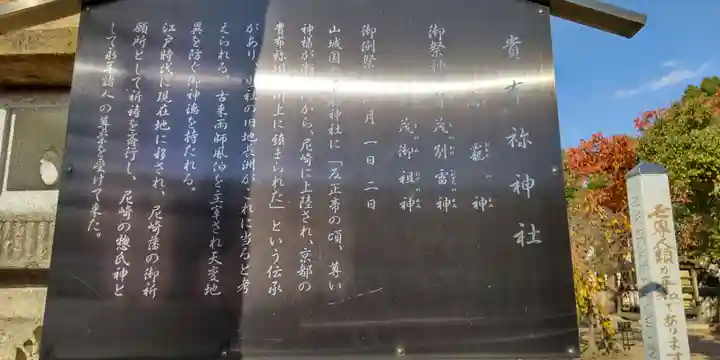 貴布祢神社
龗神
御祭神
茂別雷神
茂御祖神
御例祭 月一日二日
山城国 神社に「反正帝の頃、尊い
神様が から、尼崎に上陸され、京都の
貴布祢 川上に鎮まられた」という伝承
があり、 社の旧地長洲がこれに当ると考
えられる。古来雨師風伯を主宰され天変地
異を防ぐ御神徳を持たれる。
江戸時代に現在地に移され、尼崎藩の御祈
願所として祈祷を斎行し、尼崎の惣氏神と
して 諸人の尊崇を受けて来た。
世界人類が平和でありま